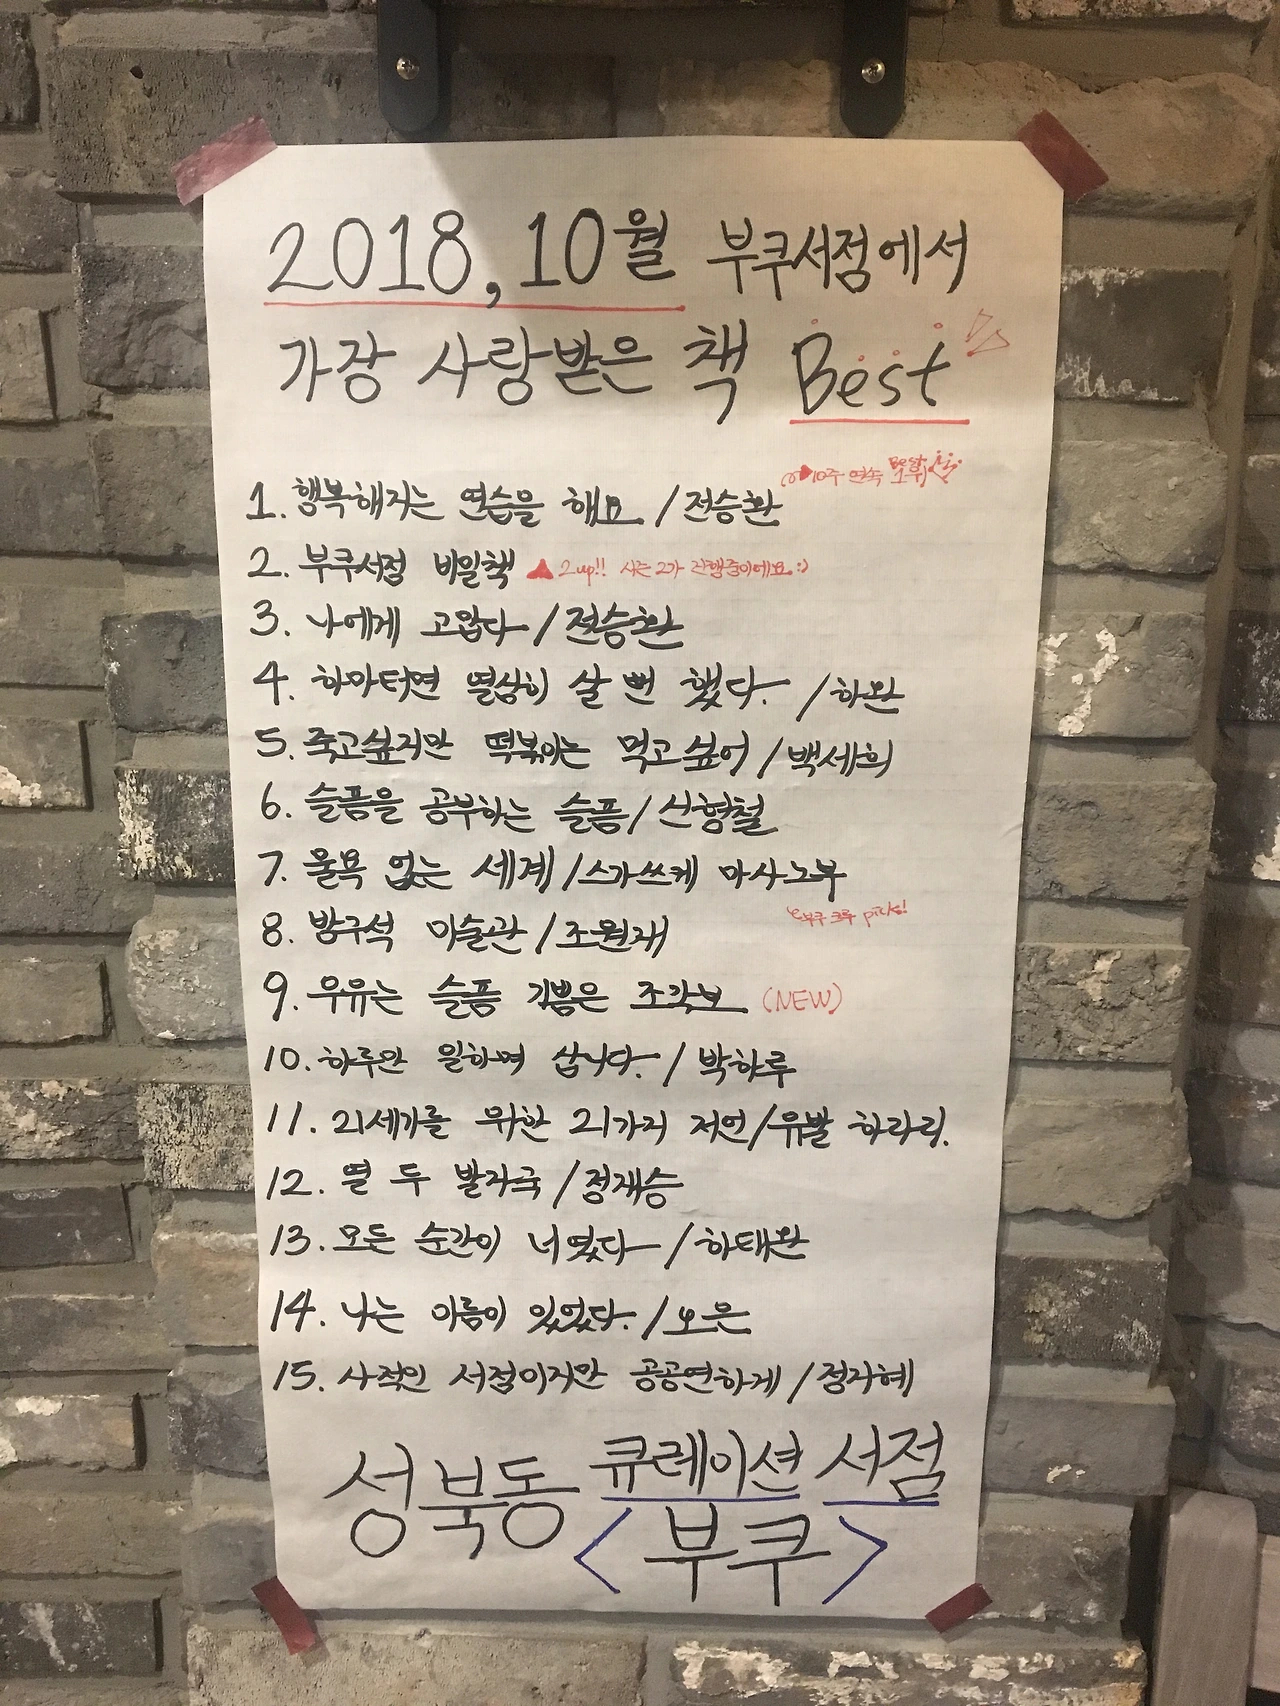 2018, 10월 부쿠서점에서
가장 사랑받은 책 Best
10주 연속 Best 1위
1. 행복해지는 연습을 해요 / 전승환
2. 부쿠서점 비밀책 ▲ 2up!! 시즌2가 진행중이에요 :)
3. 나에게 고맙다 / 전승환
4. 하마터면 열심히 살 뻔 했다. / 하완
5. 죽고싶지만 떡볶이는 먹고싶어 / 백세희
6. 슬픔을 공부하는 슬픔 / 신형철
7. 물욕 없는 세계 / 스가쓰케 마사노부
부쿠 크루 pick!
8. 방구석 미술관 / 조원재
9. 우유는 슬픔 기쁨은 조각보 (NEW)
10. 하루만 일하며 삽니다. / 박하루
11. 21세기를 위한 21가지 제언 / 유발 하라리.
12. 열 두 발자국 / 정재승
13. 모든 순간이 너였다 / 하태완
14. 나는 이름이 있었다. / 오은
15. 사적인 서점이지만 공공연하게 / 정지혜
성북동 큐레이션 서점
<부쿠>